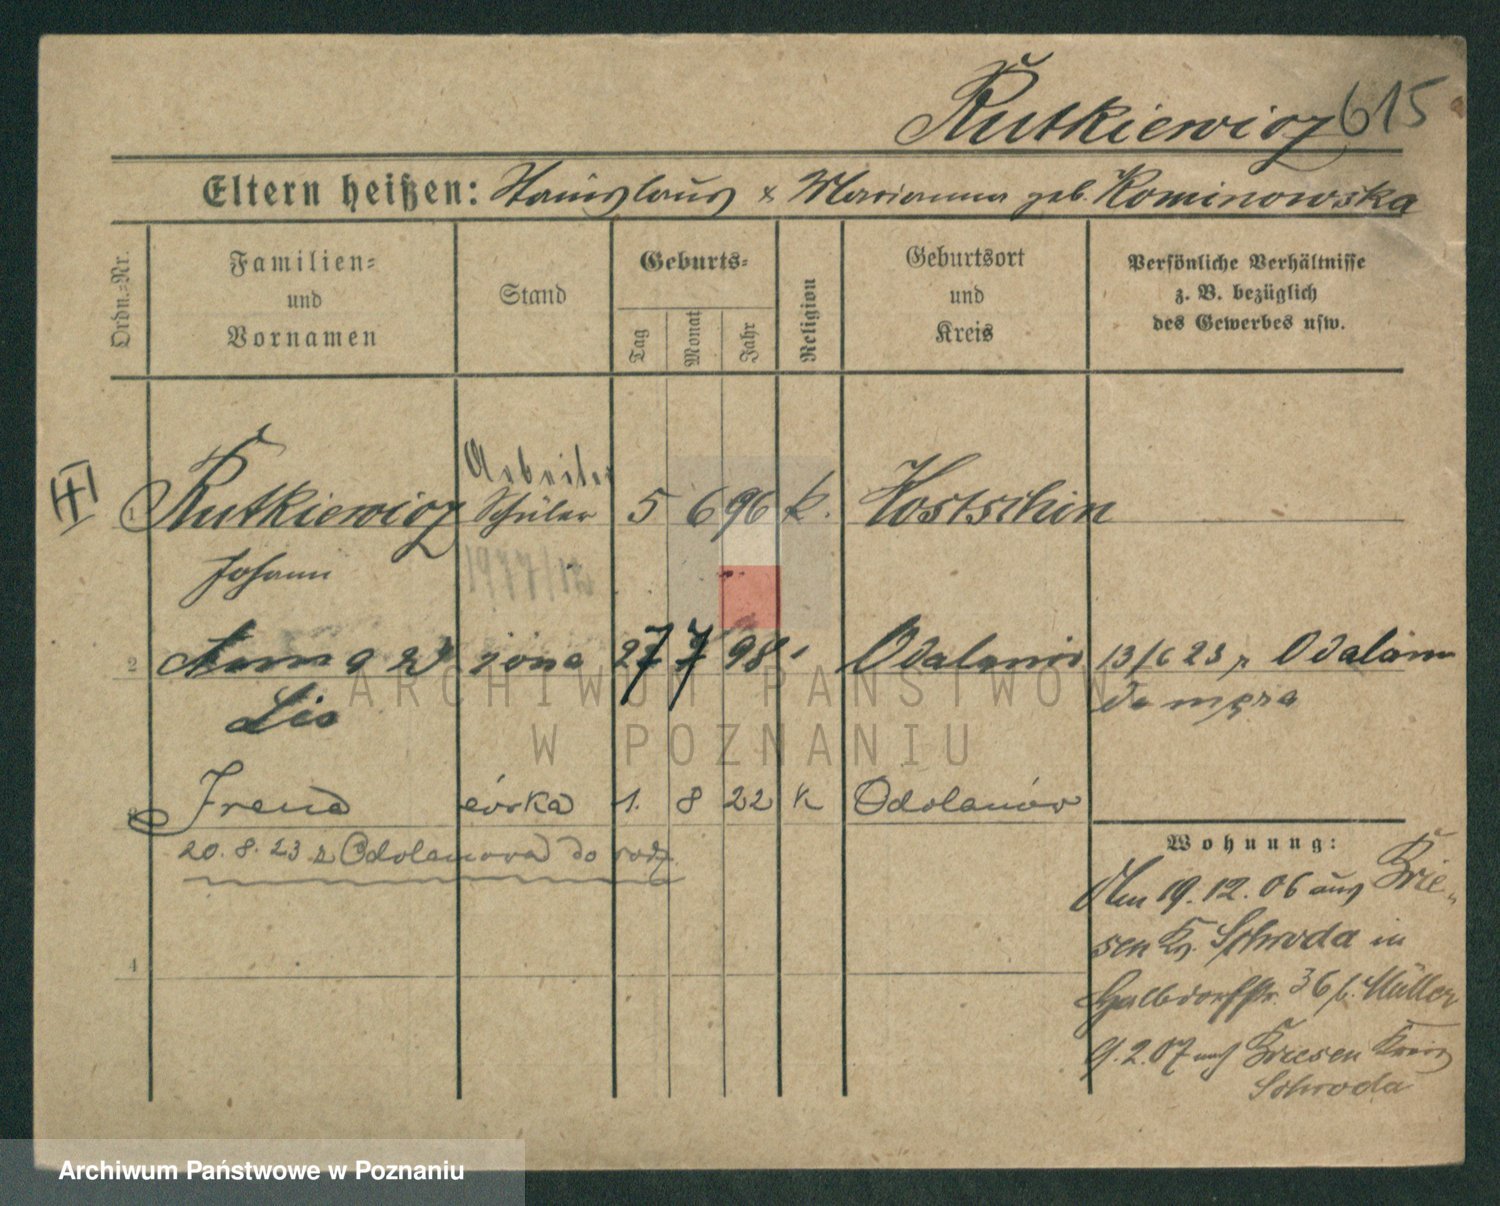 Rutkiewicz 615
Eltern heißen: Stanislaus & Marianna geb. Kominowska
Ordn.-Nr.
Familien- und Vornamen
Stand
Geburts-
Tag
Monat
Jahr
Religion
Geburtsort und Kreis
Persönliche Verhältnisse z. B. bezüglich des Gewerbes usw.
Arbeiter
1 Rutkiewicz Schüler 5 6 96 k. Kostschin
Johann
2 Anna żona 27 7 98 Odalanów 13/6 23 z Odalan
Lis do męża
3 Irena córka 1. 8 22 k Odolanów
20. 8. 23 z Odolanowa do rodz
4
Wohnung:
Am 19. 12. 06 aus Brie-
sen Kr. Schroda in
36 b. Müller
9. 2. 07 nach Briesen Kreis
Schroda
ARCHIWUM PAŃSTWOWE
W POZNANIU
Archiwum Państwowe w Poznaniu